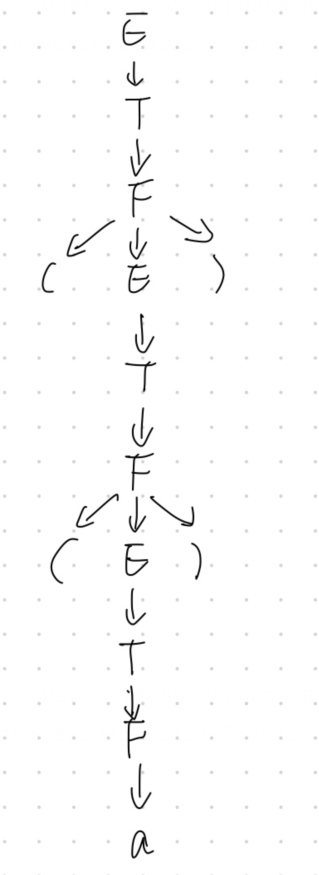 E
T
F
( E )
T
F
( E )
T
F
a